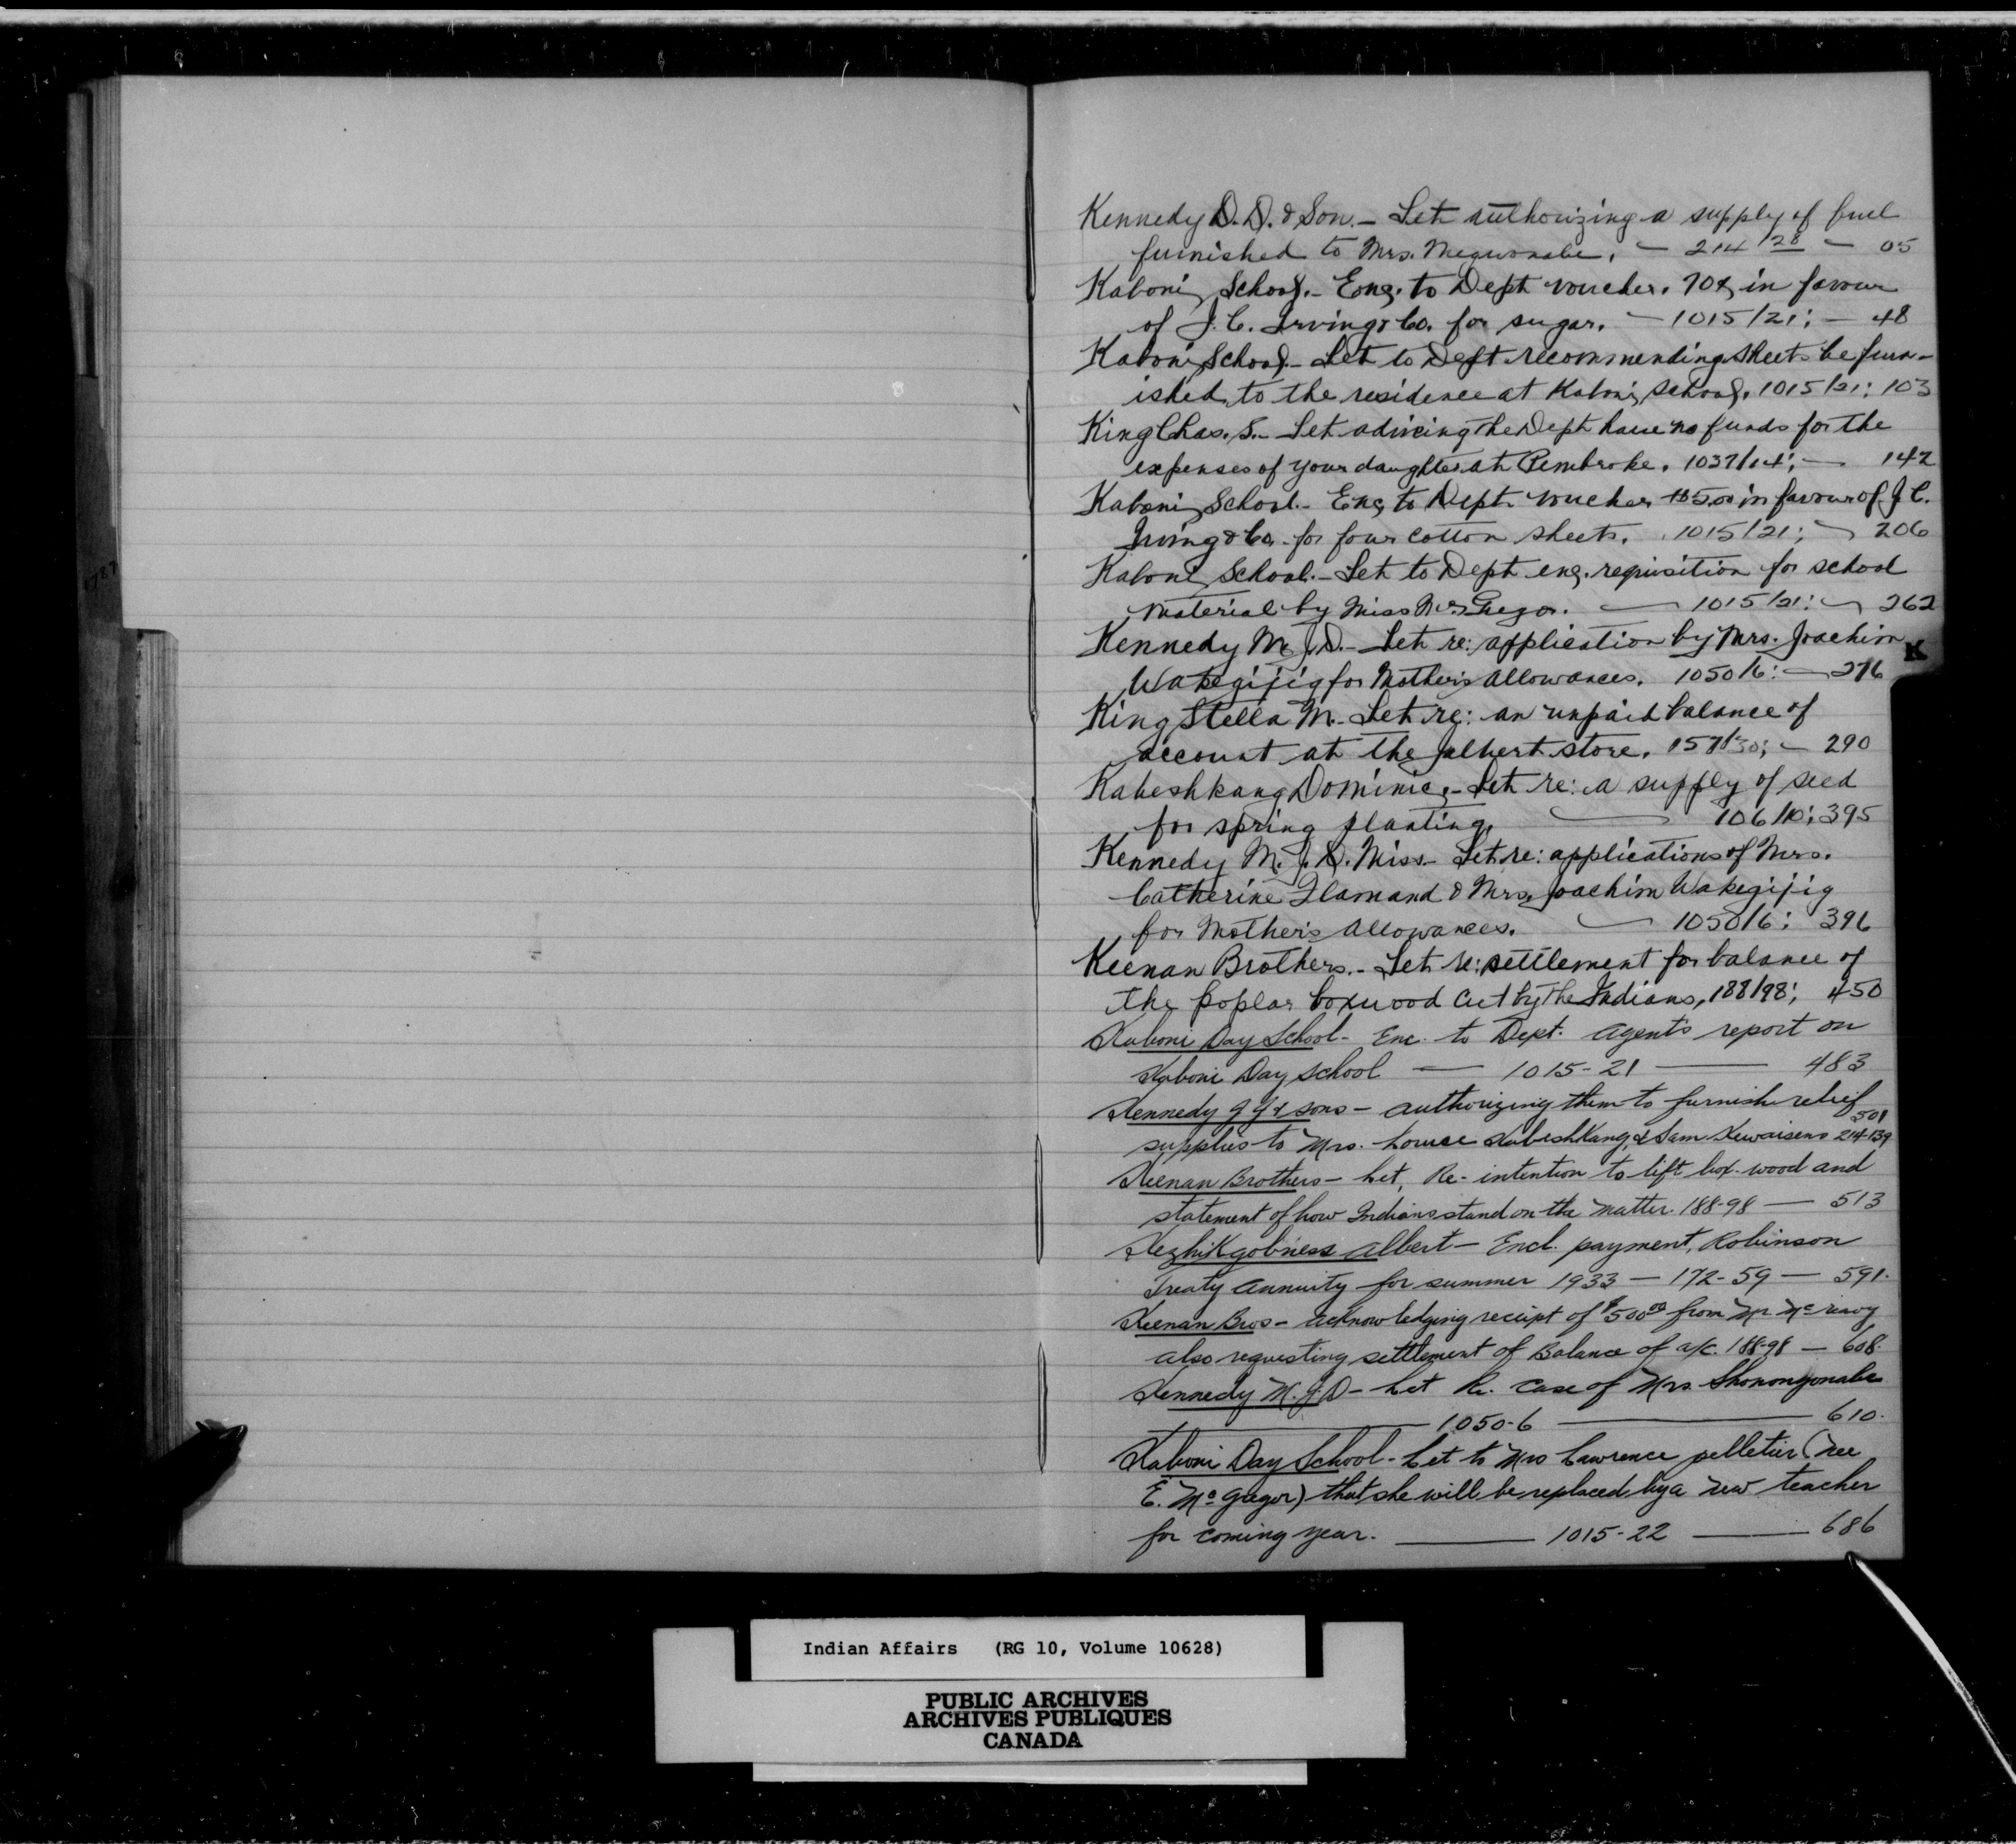 Kennedy D. D. & Son. - Let authorizing a supply of fuel
furnished to Mrs. Megwonabe. - 214/28 - 05
Kaboni School. - Enc. to Dept voucher. 70¢ in favour
of J. C. Irving & Co. for sugar. - 1015/21; - 48
Kaboni School. - Let to Dept recommending sheets be furn-
ished to the residence at Kaboni School. 1015/21; 103
King Chas. S. - Let advising the Dept have no funds for the
expenses of your daughter at Pembroke. 1037/14; - 142
Kaboni School. - Enc to Dept voucher $5.00 in favour of J. C.
Irving & Co. for four cotton sheets. 1015/21; 206
Kaboni School. - Let to Dept enc. requisition for school
material by Miss McGregor. - 1015/21; 262
Kennedy M. J. D. - Let re: application by Mrs. Joachim
K
Wakegijig for Mother's Allowances. 1050/6: - 276
King Stella M. - Let re: an unpaid balance of
account at the Jalbert store. 157/30; - 290
Kabeshkang Dominic. - Let re: a supply of seed
for spring planting. 106/10; 395
Kennedy M. J. D. Miss - Let re: applications of Mrs.
Catherine Flamand & Mrs. Joachim Wakegijig
for Mother's Allowances. 1050/6: 396
Keenan Brothers. - Let re: settlement for balance of
the poplar boxwood cut by the Indians, 188/98; 450
Kaboni Day School - Enc. to Dept. agent's report on
Kaboni Day School - 1015-21 - 483
Kennedy J J & sons - authorizing them to furnish relief
501
supplies to Mrs. Louise Kabeshkang, & Sam Kewaisens 214-139
Keenan Brothers - Let, Re - intention to lift box-wood and
statement of how Indians stand on the matter. 188-98 - 513
Kezhikgobness Albert - Encl. payment, Robinson
Treaty Annuity for summer 1933 - 172-59 - 591.
Keenan Bros - acknowledging receipt of $500.00 from Mr
also requesting settlement of Balance of a/c. 188-98 - 608.
Kennedy M. J. D - Let Re. case of Mrs. Shonongonabe
1050-6 - 610.
Kaboni Day School - Let to Mrs Lawrence pelletier (nee
E. McGregor) that she will be replaced by a new teacher
for coming year. - 1015-22 - 686
Indian Affairs (RG 10, Volume 10628)
PUBLIC ARCHIVES
ARCHIVES PUBLIQUES
CANADA